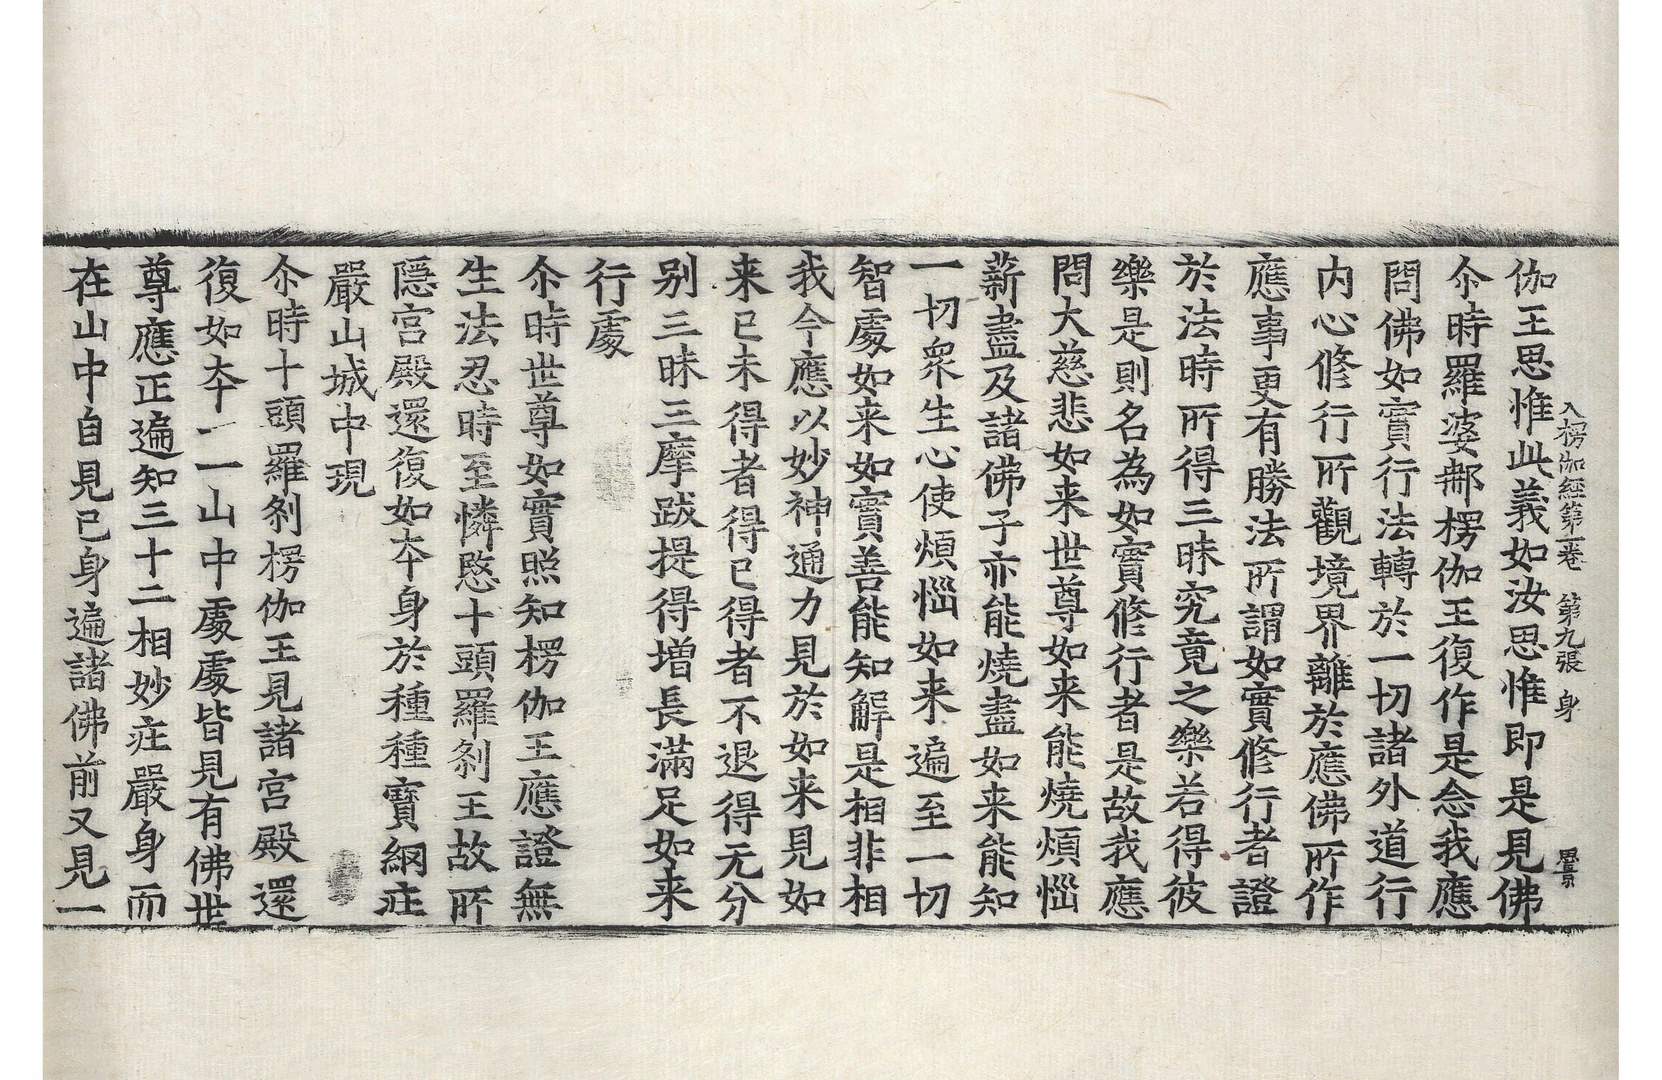 入楞伽經第一卷 第九張 身
伽王思惟此義如汝思惟即是見佛
尒時羅婆那楞伽王復作是念我應
問佛如實行法轉於一切諸外道行
内心修行所觀境界離於應佛所作
應事更有勝法所謂如實修行者證
於法時所得三昧究竟之樂若得彼
樂是則名為如實修行者是故我應
問大慈悲如来世尊如来能燒煩惱
薪盡及諸佛子亦能燒盡如来能知
一切衆生心使煩惱如来遍至一切
智處如来如實善能知解是相非相
我今應以妙神通力見於如来見如
来已未得者得已得者不退得无分
别三昧三摩跋提得增長滿足如来
行處
尒時世尊如實照知楞伽王應證無
生法忍時至憐愍十頭羅刹王故所
隱宫殿還復如夲身於種種寶網莊
嚴山城中現
尒時十頭羅刹楞伽王見諸宫殿還
復如夲一一山中處處皆見有佛世
尊應正遍知三十二相妙莊嚴身而
在山中自見已身遍諸佛前又見一